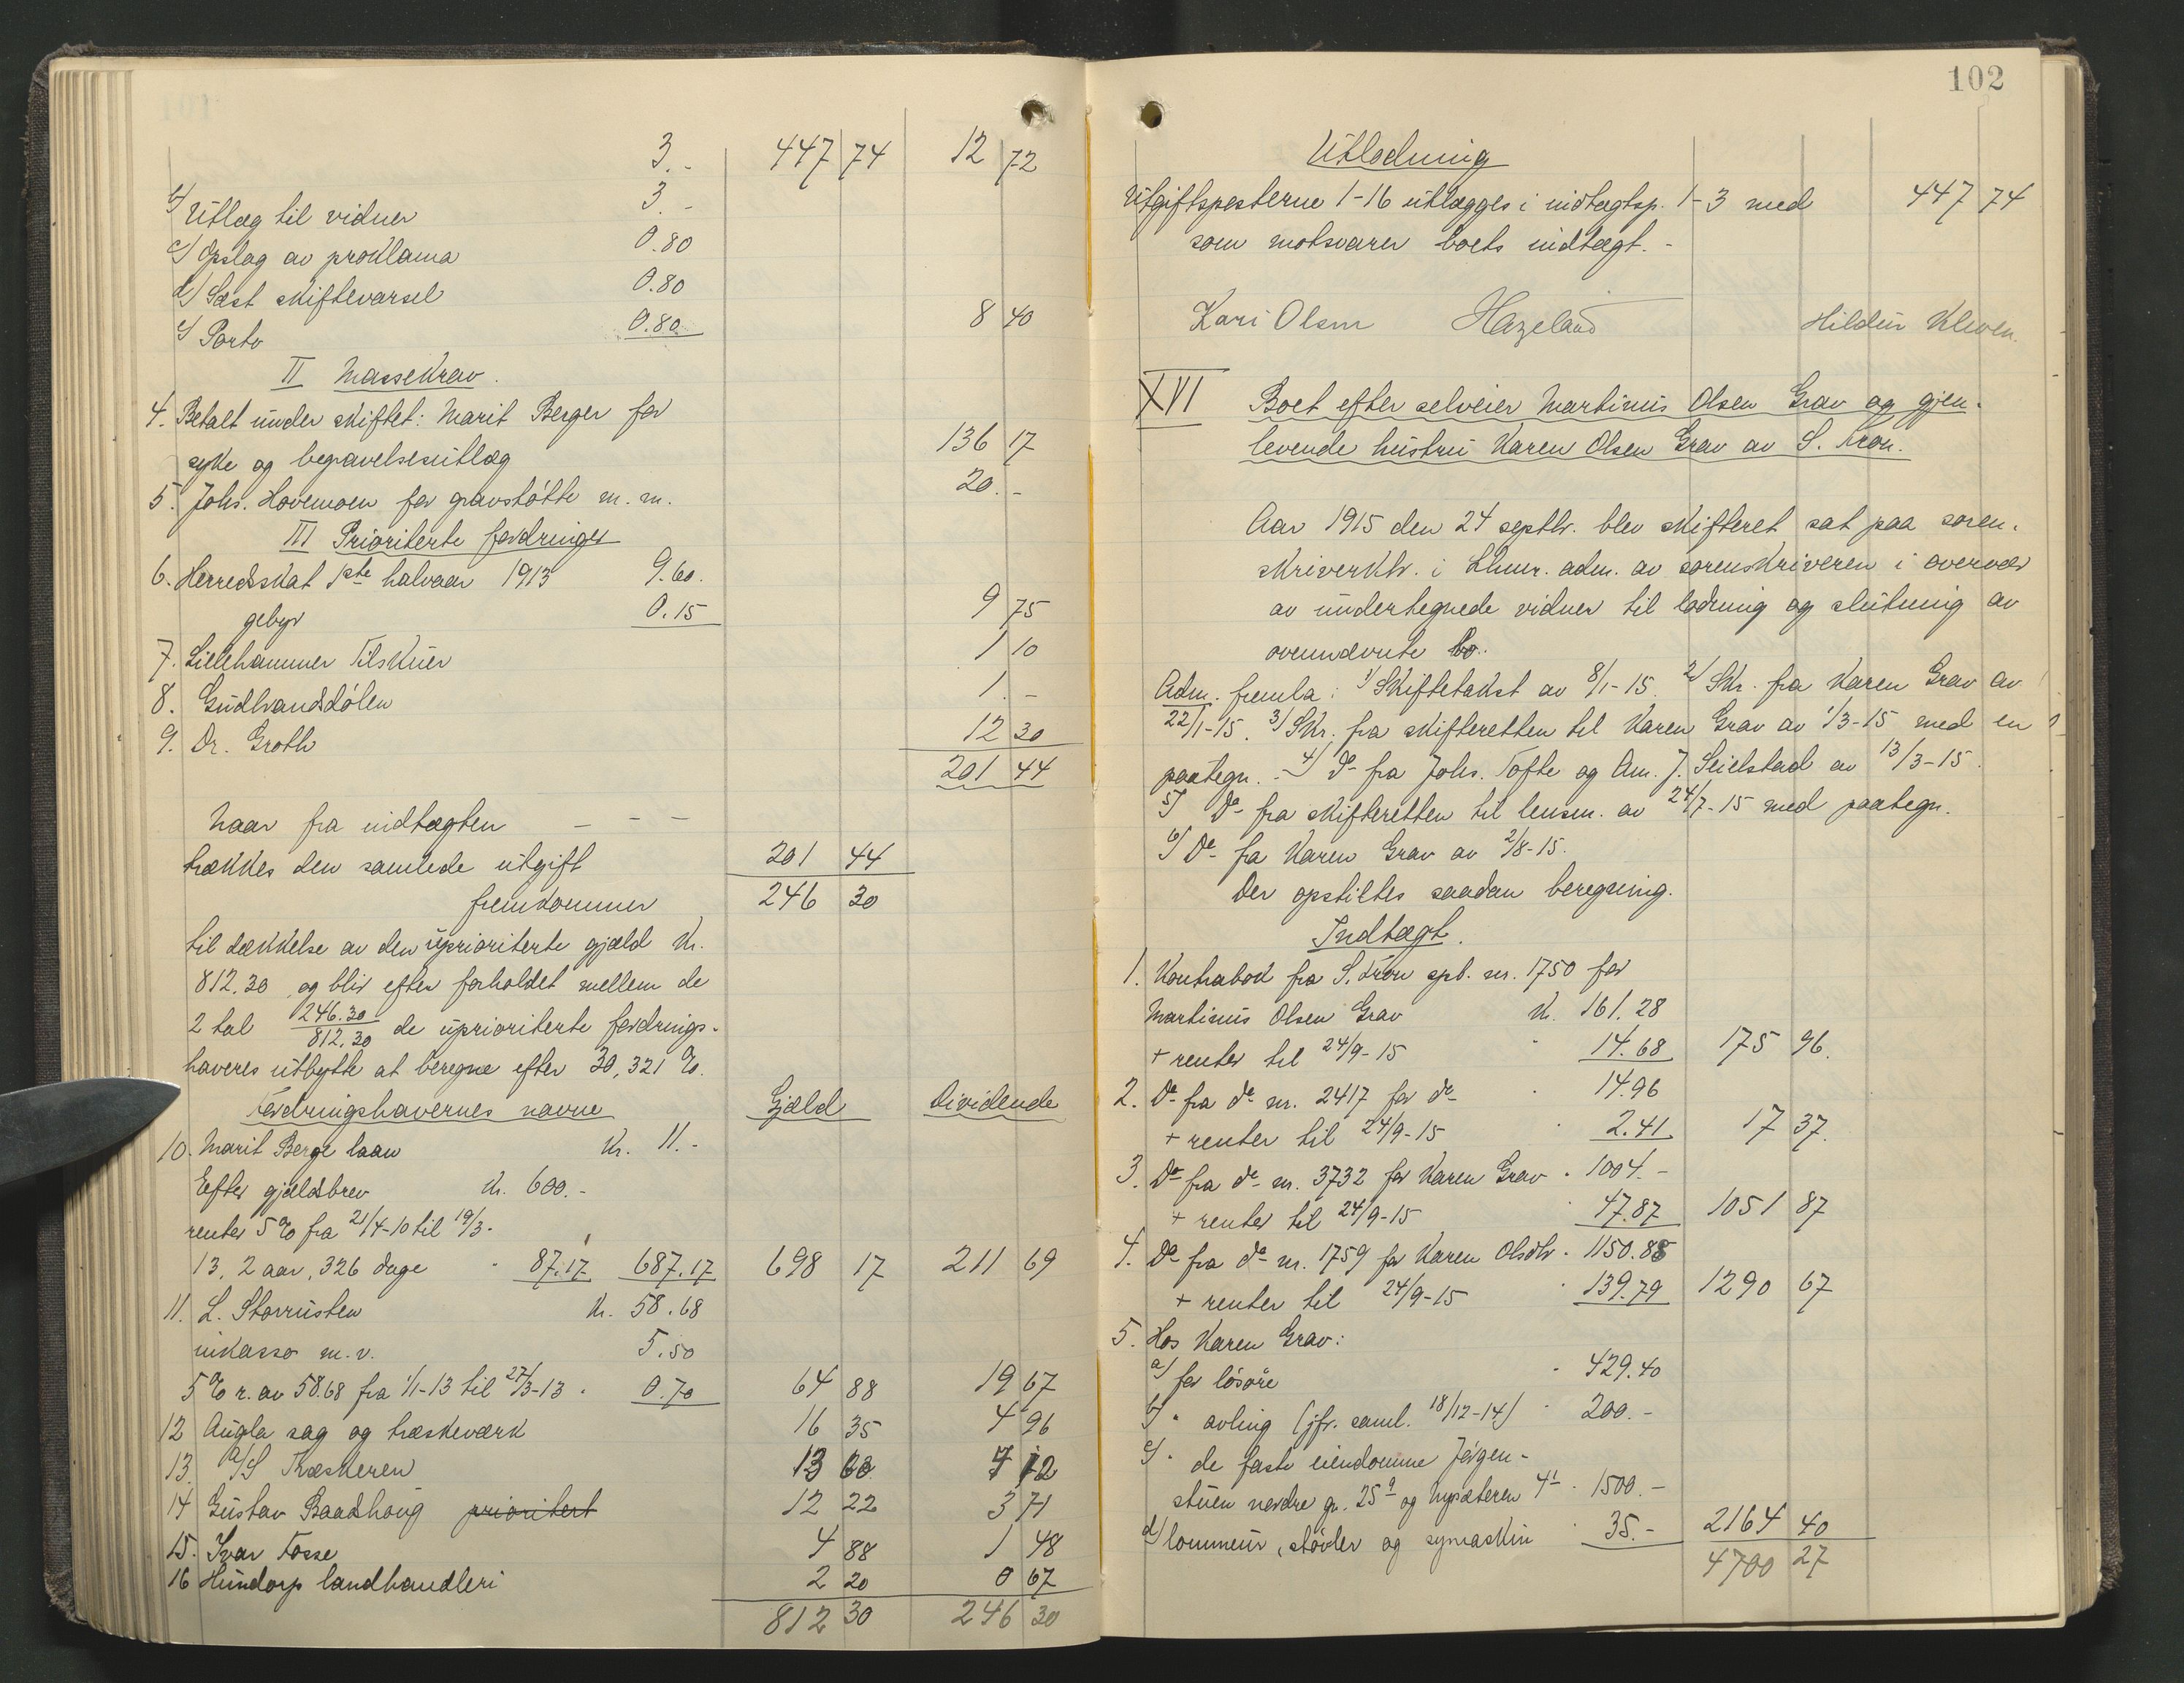 3.- 447 74 12 72
b) Utlæg til vidner 3.-
c) Opslag av proklama 0.80
d) Læst skiftevarsel 0.80
e) Porto 0.80 8 40
II Massekrav.
4. Betalt under skiftet: Marit Berger for
syke og begravelsesutlæg 136 17
5. Johs. Hovemoen for gravstøtte m. m. 20.-
III Prioriterte fordringer
6. Herredsskat 1ste halvaar 1913 9.60.
gebyr 0.15 9 75
7. Lillehammer Tilskuer 1 10
8. Gudbrandsdølen 1.-
9. Dr. Groth 12 30
201 44
Naar fra indtægten - - -
trækkes den samlede utgift 201 44
fremkommer 246 30
til dækkelse av den uprioriterte gjæld Kr.
812.30 og blir efter forholdet mellem de
2 tal 246.30/812.30 de uprioriterte fordrings-
haveres utbytte at beregne efter 30,321 %.
Fordringshavernes navne Gjæld Dividende
10. Marit Berge laan Kr. 11.-
Efter gjældsbrev Kr. 600.-
renter 5 % fra 21/4-10 til 19/3-
13, 2 aar, 326 dage " 87.17 687.17 698 17 211 69
11. L. Storrusten Kr. 58.68
inkasso m.v. 5.50
5 % r. av 58.68 fra 1/1-13 til 27/3-13 " 0.70 64 88 19 67
12 Augla sag og træskeværk 16 35 4 96
13. A/S Træskeren 13 60 4 12
14 Gustav Baadhaug prioritert 12 22 3 71
15. Ivar Fosse 4 88 1 48
16 Hundorp landhandleri 2 20 0 67
812 30 246 30
102
Utlodning
Utgiftsposterne 1-16 utlægges i indtægtsp. 1-3 med 447 74
som motsvarer boets indtægt.-
Kari Olsen Hazeland Hildur Kleven.
XVI Boet efter selveier Martinus Olsen Grav og gjen-
levende hustru Karen Olsen Grav av S. Fron.
Aar 1915 den 24 septbr. blev skifteret sat paa soren-
skriverktr. i Lhmr. adm. av sorenskriveren i overvær
av undertegnede vidner til lodning og slutning av
ovennævnte bo.
Adm. fremla: 1) Skiftetakst av 8/1-15. 2) Skr. fra Karen Grav av
22/1-15. 3) Skr. fra skifteretten til Karen Grav av 1/3-15 med en
paategn. - 4) Do fra Johs. Tofte og Am. J. Seielstad av 13/3-15.
5) Do fra skifteretten til lensm. av 24/7-15 med paategn.
6) Do fra Karen Grav av 2/8-15.
Der opstiltes saadan beregning.
Indtægt.
1. Kontrabok fra S. Fron spb. nr. 1750 for
Martinus Olsen Grav Kr. 161.28
+ renter til 24/9-15 " 14.68 175 96.
2. Do fra do nr. 2417 for do " 14.96
+ renter til 24/9-15 " 2.41 17 37.
3. Do fra do nr. 3732 for Karen Grav " 1004.-
+ renter til 24/9-15 " 47.87 1051 87
4. Do fra do nr. 1759 for Karen Olsdtr. " 1150.88
+ renter til 24/9-15 " 139.79 1290 67
5. Hos Karen Grav:
a) for løsøre " 429.40
b) " avling (jfr. saml. 18/12-14) " 200.-
c) " de faste eiendomme Jørgen-
stuen nordre gr. 25 9 og Nysæteren 41 " 1500.-
d) lommeur, støvler og symaskin " 35.- 2164 40
4700 27